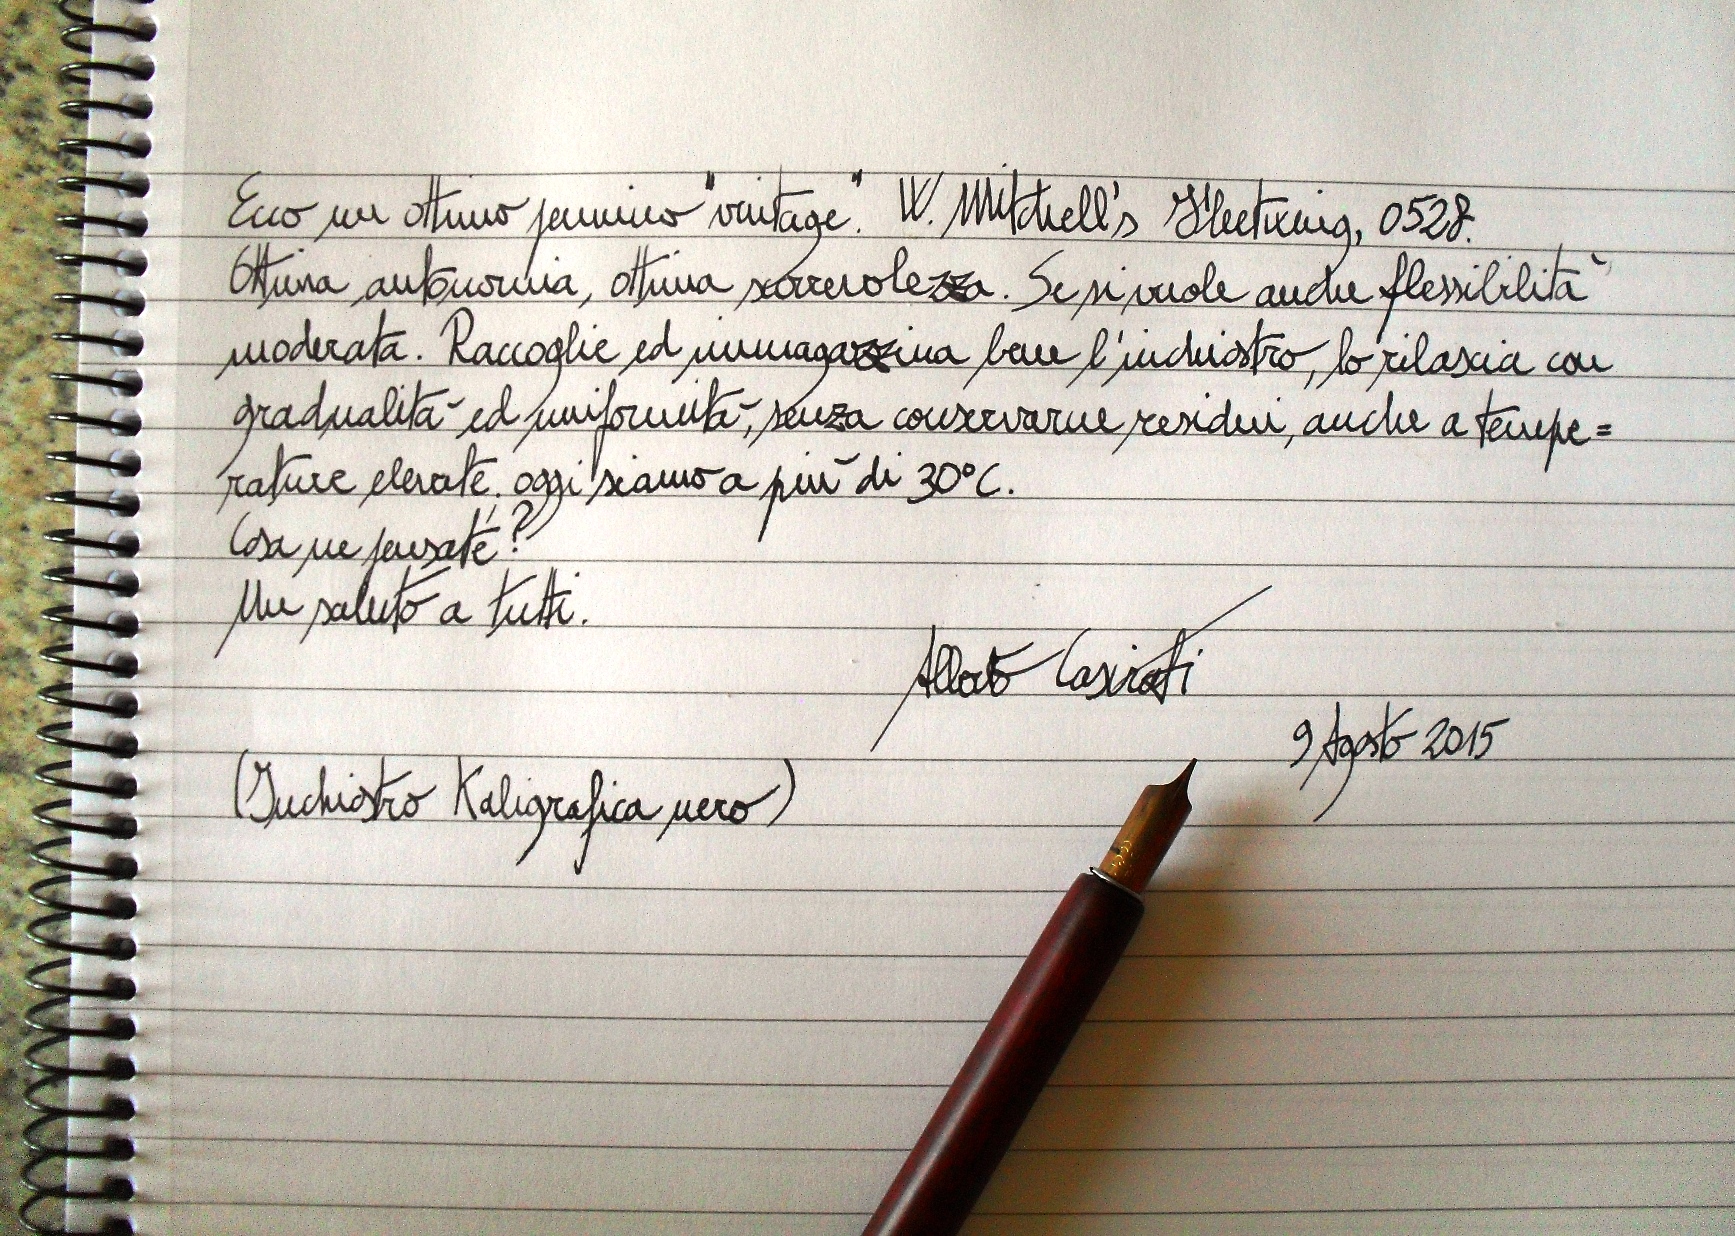 Ecco un ottimo pennino "vintage". W. Mitchell's 0528.
Ottima autonomia, ottima scorrevolezza. Se si vuole anche flessibilità
moderata. Raccoglie ed immagazzina bene l'inchiostro, lo rilascia con
gradualità ed uniformità, senza conservarne residui, anche a tempe=
rature elevate. oggi siamo a più di 30°C.
Cosa ne pensate?
Un saluto a tutti.
Alberto Casirati
9 Agosto 2015
(Inchiostro Kaligrafica nero)